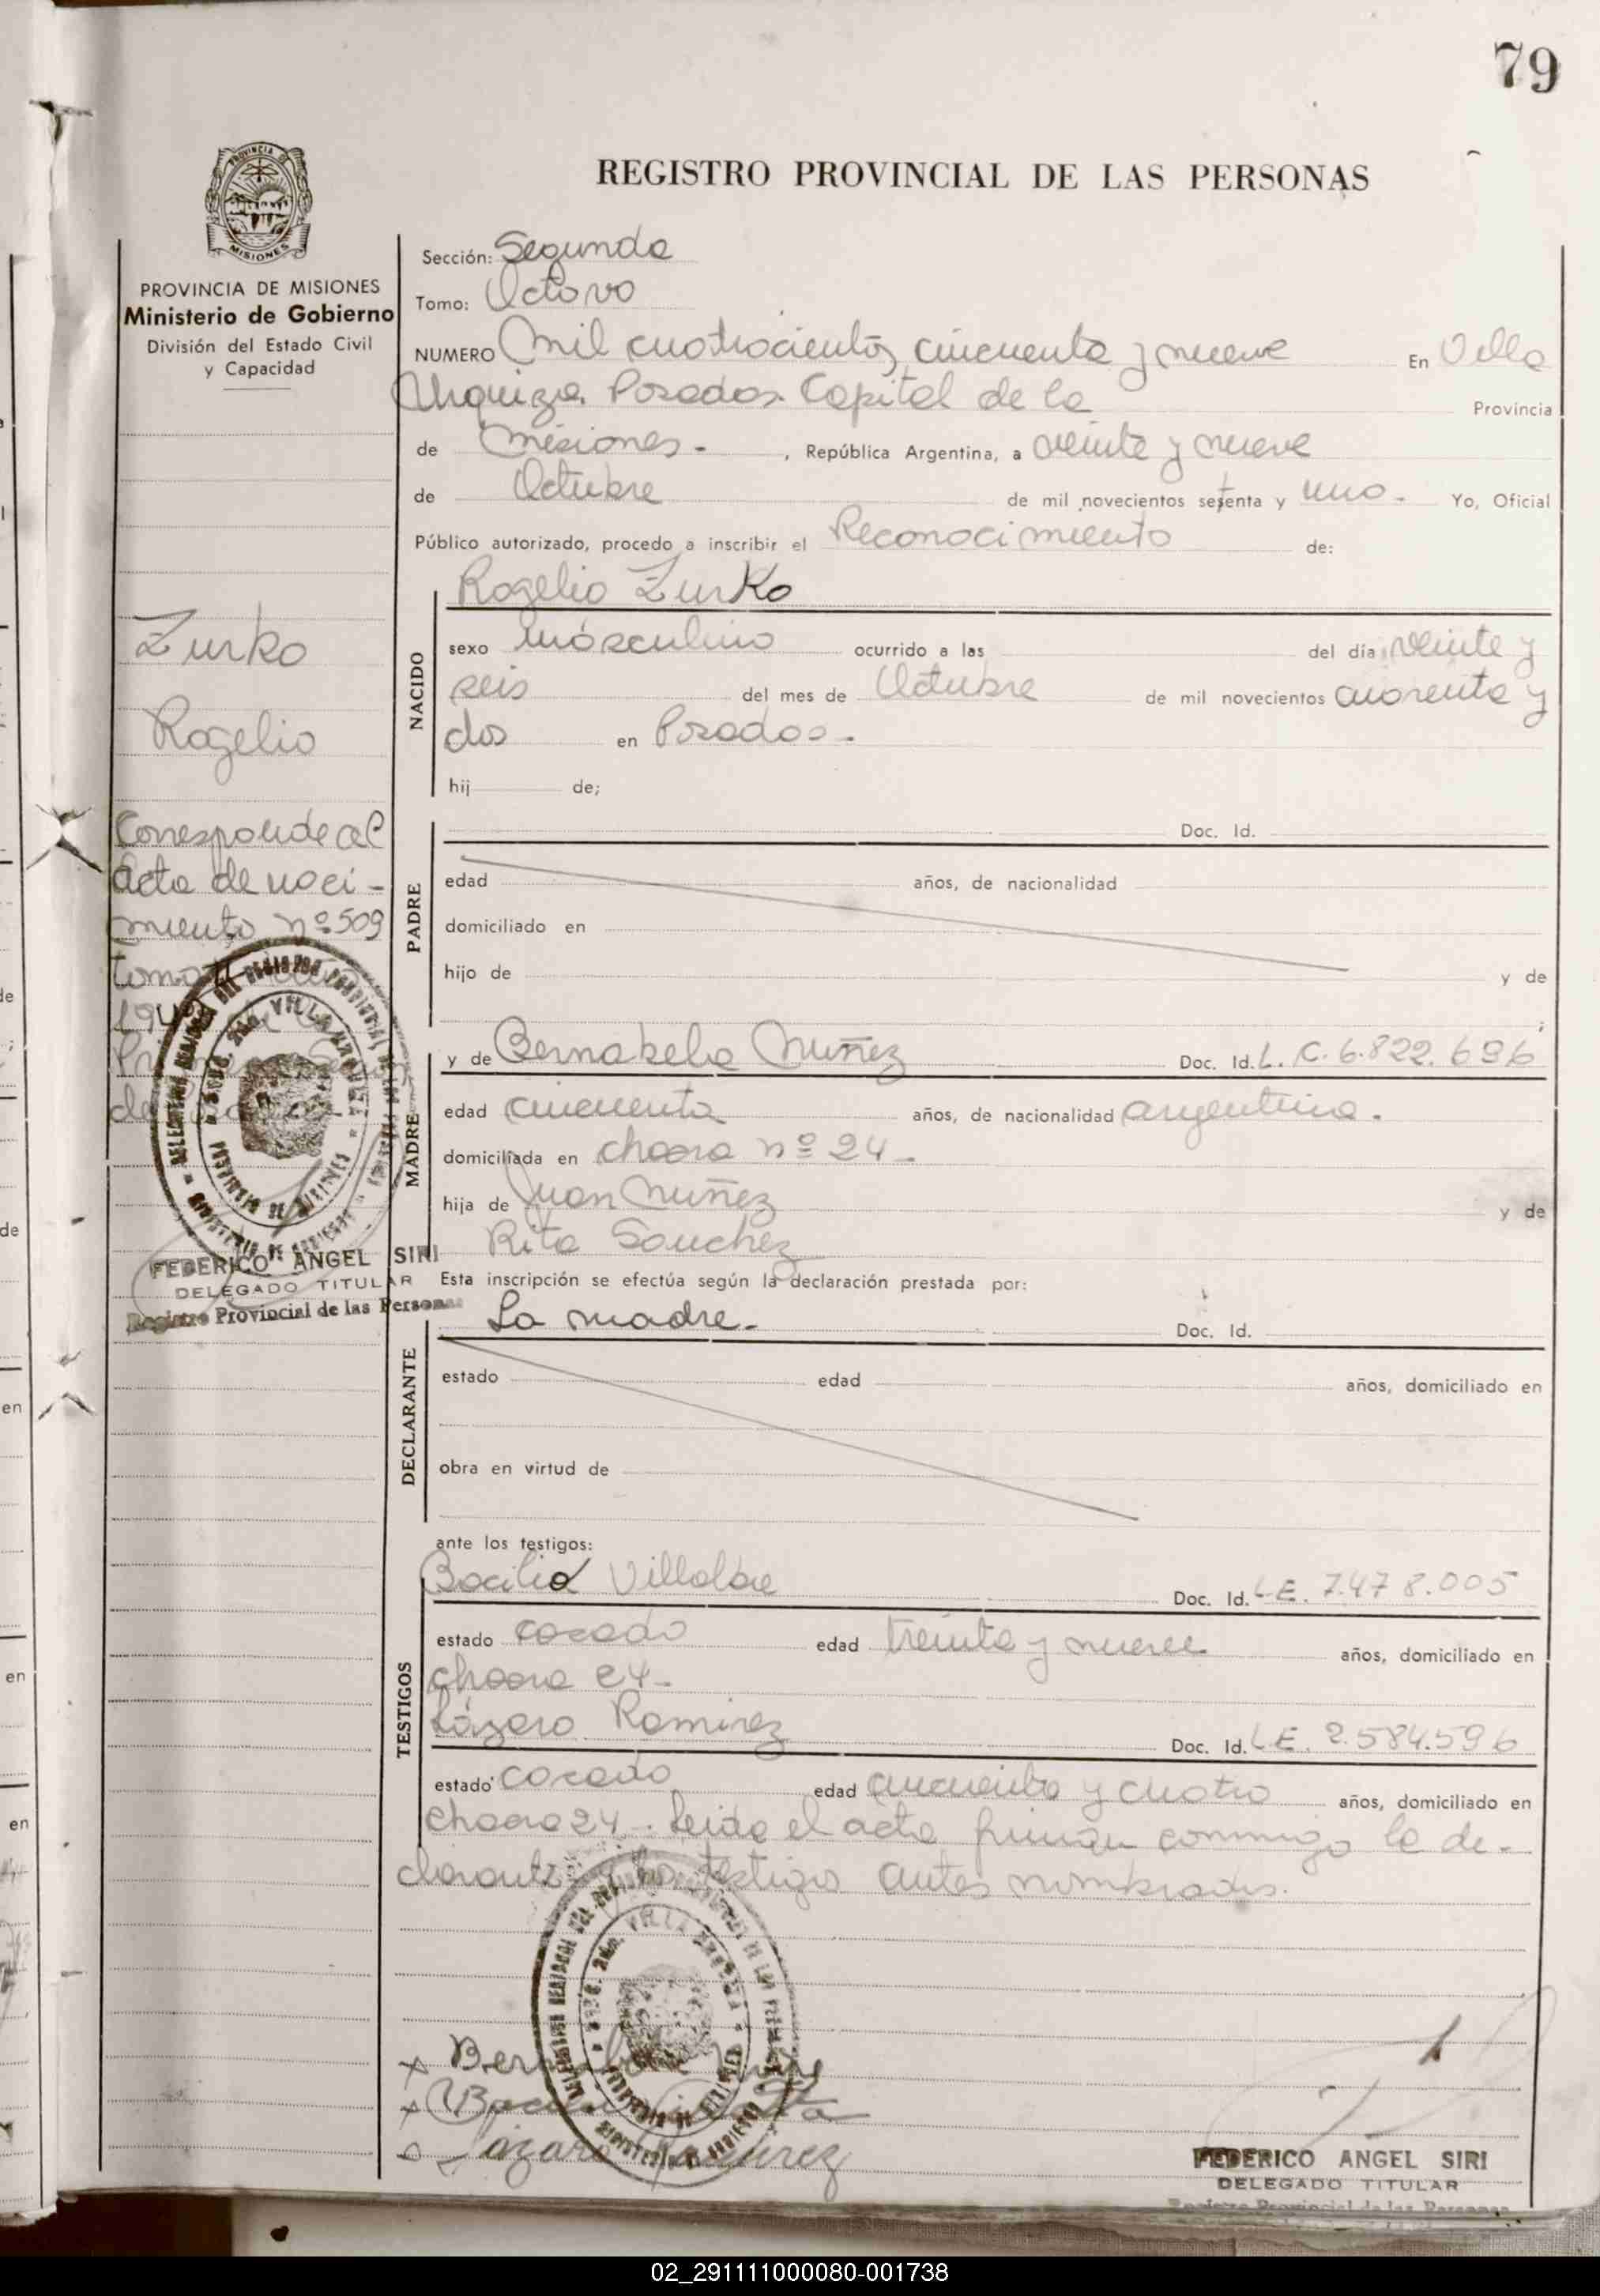 79
REGISTRO PROVINCIAL DE LAS PERSONAS
PROVINCIA DE
MISIONES
PROVINCIA DE MISIONES
Ministerio de Gobierno
División del Estado Civil
y Capacidad
Sección: Segunda
Tomo: Octavo
NUMERO Mil cuatrocientos cincuenta y nueve En Villa
Urquiza. Posadas. Capital de la Provincia
de Misiones. - , República Argentina, a veinte y nueve
de Octubre de mil novecientos setenta y uno. Yo, Oficial
Público autorizado, procedo a inscribir el Reconocimiento de:
Rogelio Zurko
NACIDO
sexo masculino ocurrido a las del día veinte y
seis del mes de Octubre de mil novecientos cuarenta y
dos en Posadas. -
hij de;
Zurko
Rogelio
Corresponde al
Acta de naci-
miento nº 509
tomo
PADRE
Doc. Id.
edad años, de nacionalidad
domiciliado en
hijo de y de
;
MADRE
y de Bernabela Nuñez Doc. Id. L. C. 6.822.696
edad cincuenta años, de nacionalidad argentina.
domiciliada en chacra nº 24 -
hija de Juan Nuñez y de
Rita Sanchez
VILLA
FEDERICO ANGEL SIRI
DELEGADO TITULAR
Registro Provincial de las Personas
Esta inscripción se efectúa según la declaración prestada por:
La madre. Doc. Id.
DECLARANTE
estado edad años, domiciliado en
obra en virtud de
ante los testigos:
TESTIGOS
Bacilia Villalba Doc. Id. L.E. 7.478.005
estado casado edad treinta y nueve años, domiciliado en
chacra 24 -
Lázaro Ramirez Doc. Id. L.E. 2.584.596
estado casado edad cincuenta y cuatro años, domiciliado en
chacra 24 -. Leida el acta firman conmigo la de-
clarante y los testigos antes nombrados.
VILLA URQUIZA
Lázaro Ramirez
FEDERICO ANGEL SIRI
DELEGADO TITULAR
Registro Provincial de las Personas
02_291111000080-001738